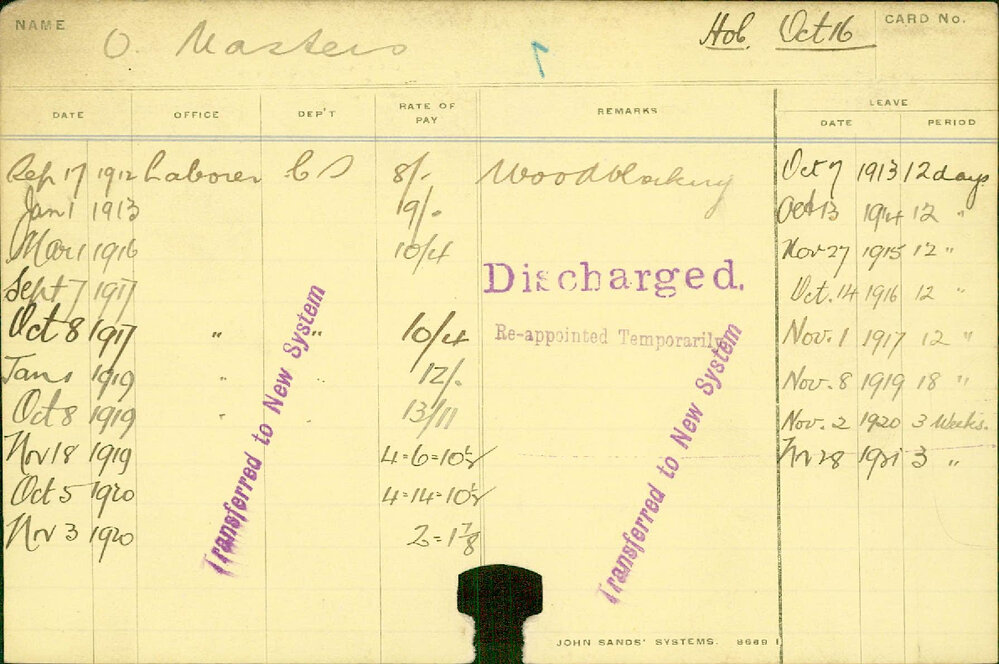 NAME O. Masters Hol. Oct 16 CARD No.
DATE OFFICE DEP'T RATE OF PAY REMARKS LEAVE
DATE PERIOD
Sep 17 1912 Laborer C S 8/- Woodblocking Oct 7 1913 12 days
Jan 1 1913 9/- Oct 13 1914 12 "
Mar 1 1916 10/4 Nov 27 1915 12 "
Sept 7 1917 Discharged. Oct. 14 1916 12 "
Oct 8 1917 " " 10/4 Re-appointed Temporarily Nov. 1 1917 12 "
Jan 1 1919 " 12/- Nov. 8 1919 18 "
Oct 8 1919 " 13/11 Nov. 2 1920 3 Weeks.
Nov 18 1919 4=6=10½ Nov 28 1921 3 "
Oct 5 1920 4=14=10½
Nov 3 1920 2=1⅞
Transferred to New System
Transferred to New System
JOHN SANDS' SYSTEMS. 8689 1